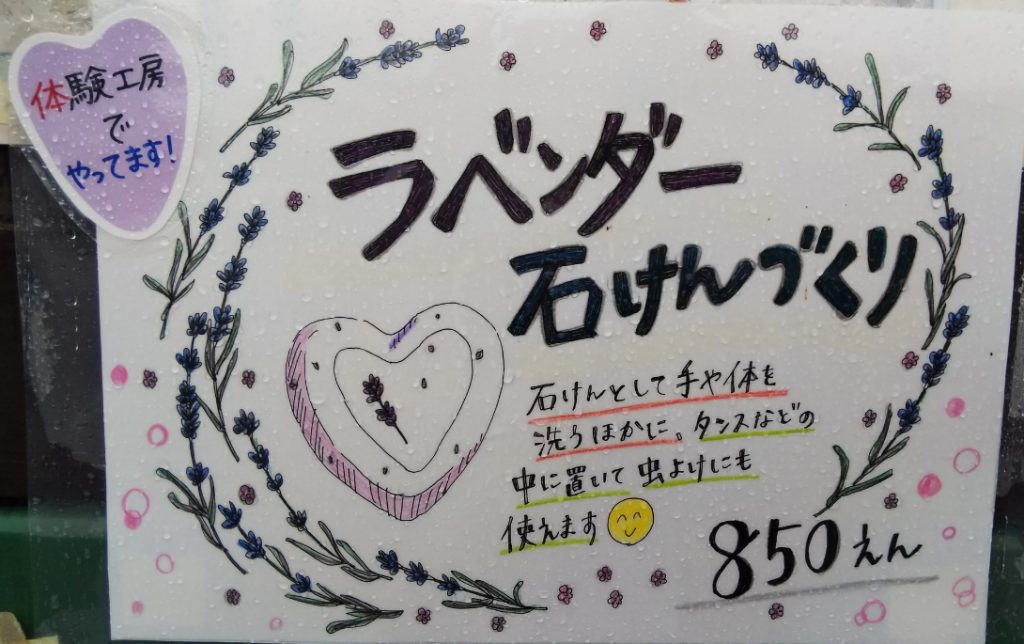 体験工房
で
やってます!
ラベンダー
石けんづくり
石けんとして手や体を
洗うほかに。タンスなどの
中に置いて虫よけにも
使えます
850えん